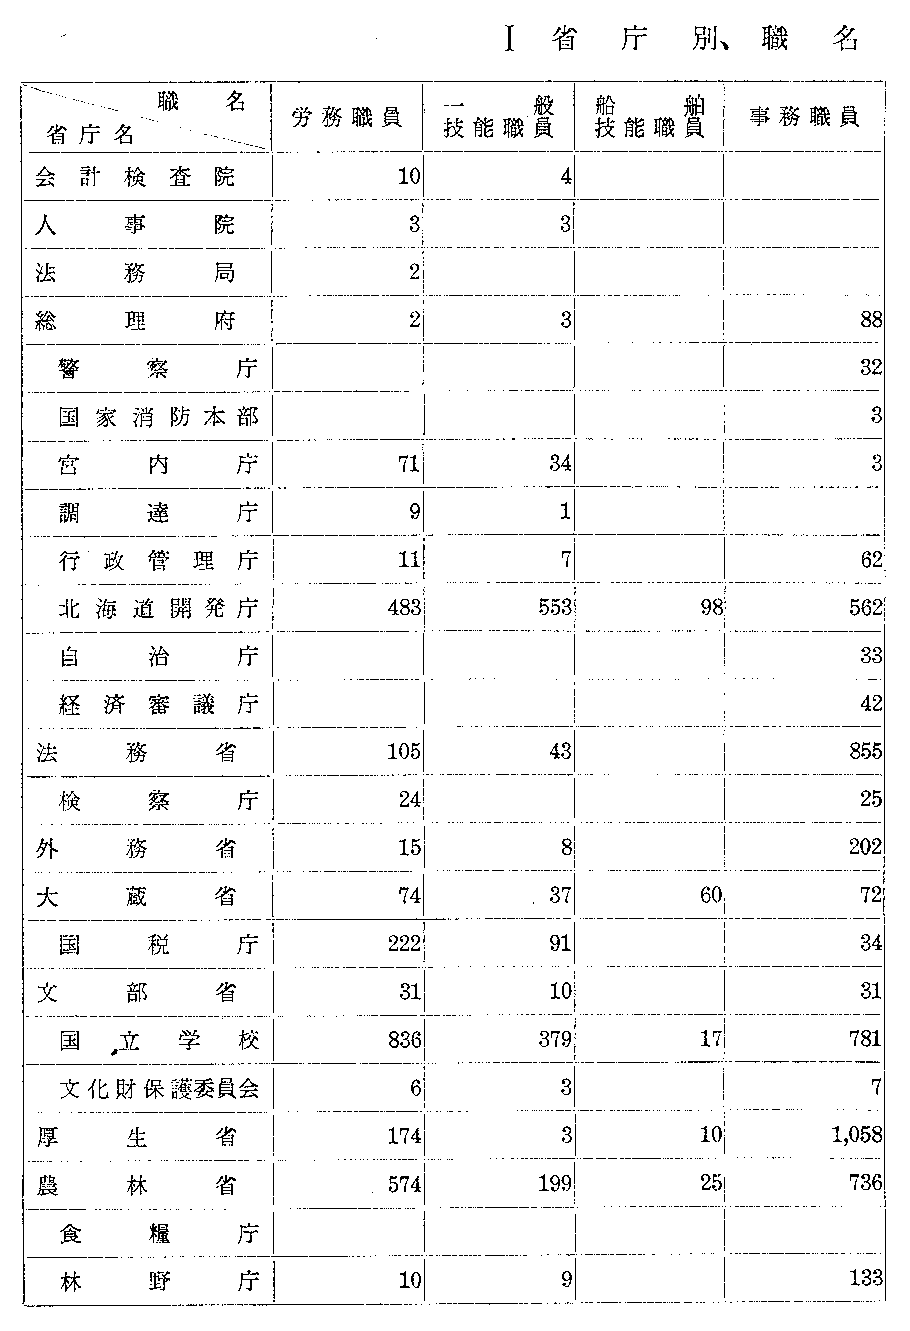 I 省庁別、職名
職名
省庁名 労務職員 一般技能職員 船舶技能職員 事務職員
会計検査院 10 4
人事院 3 3
法務局 2
総理府 2 3 88
警察庁 32
国家消防本部 3
宮内庁 71 34 3
調達庁 9 1
行政管理庁 11 7 62
北海道開発庁 483 553 98 562
自治庁 33
経済審議庁 42
法務省 105 43 855
検察庁 24 25
外務省 15 8 202
大蔵省 74 37 60 72
国税庁 222 91 34
文部省 31 10 31
国立学校 836 379 17 781
文化財保護委員会 6 3 7
厚生省 174 3 10 1,058
農林省 574 199 25 736
食糧庁
林野庁 10 9 133